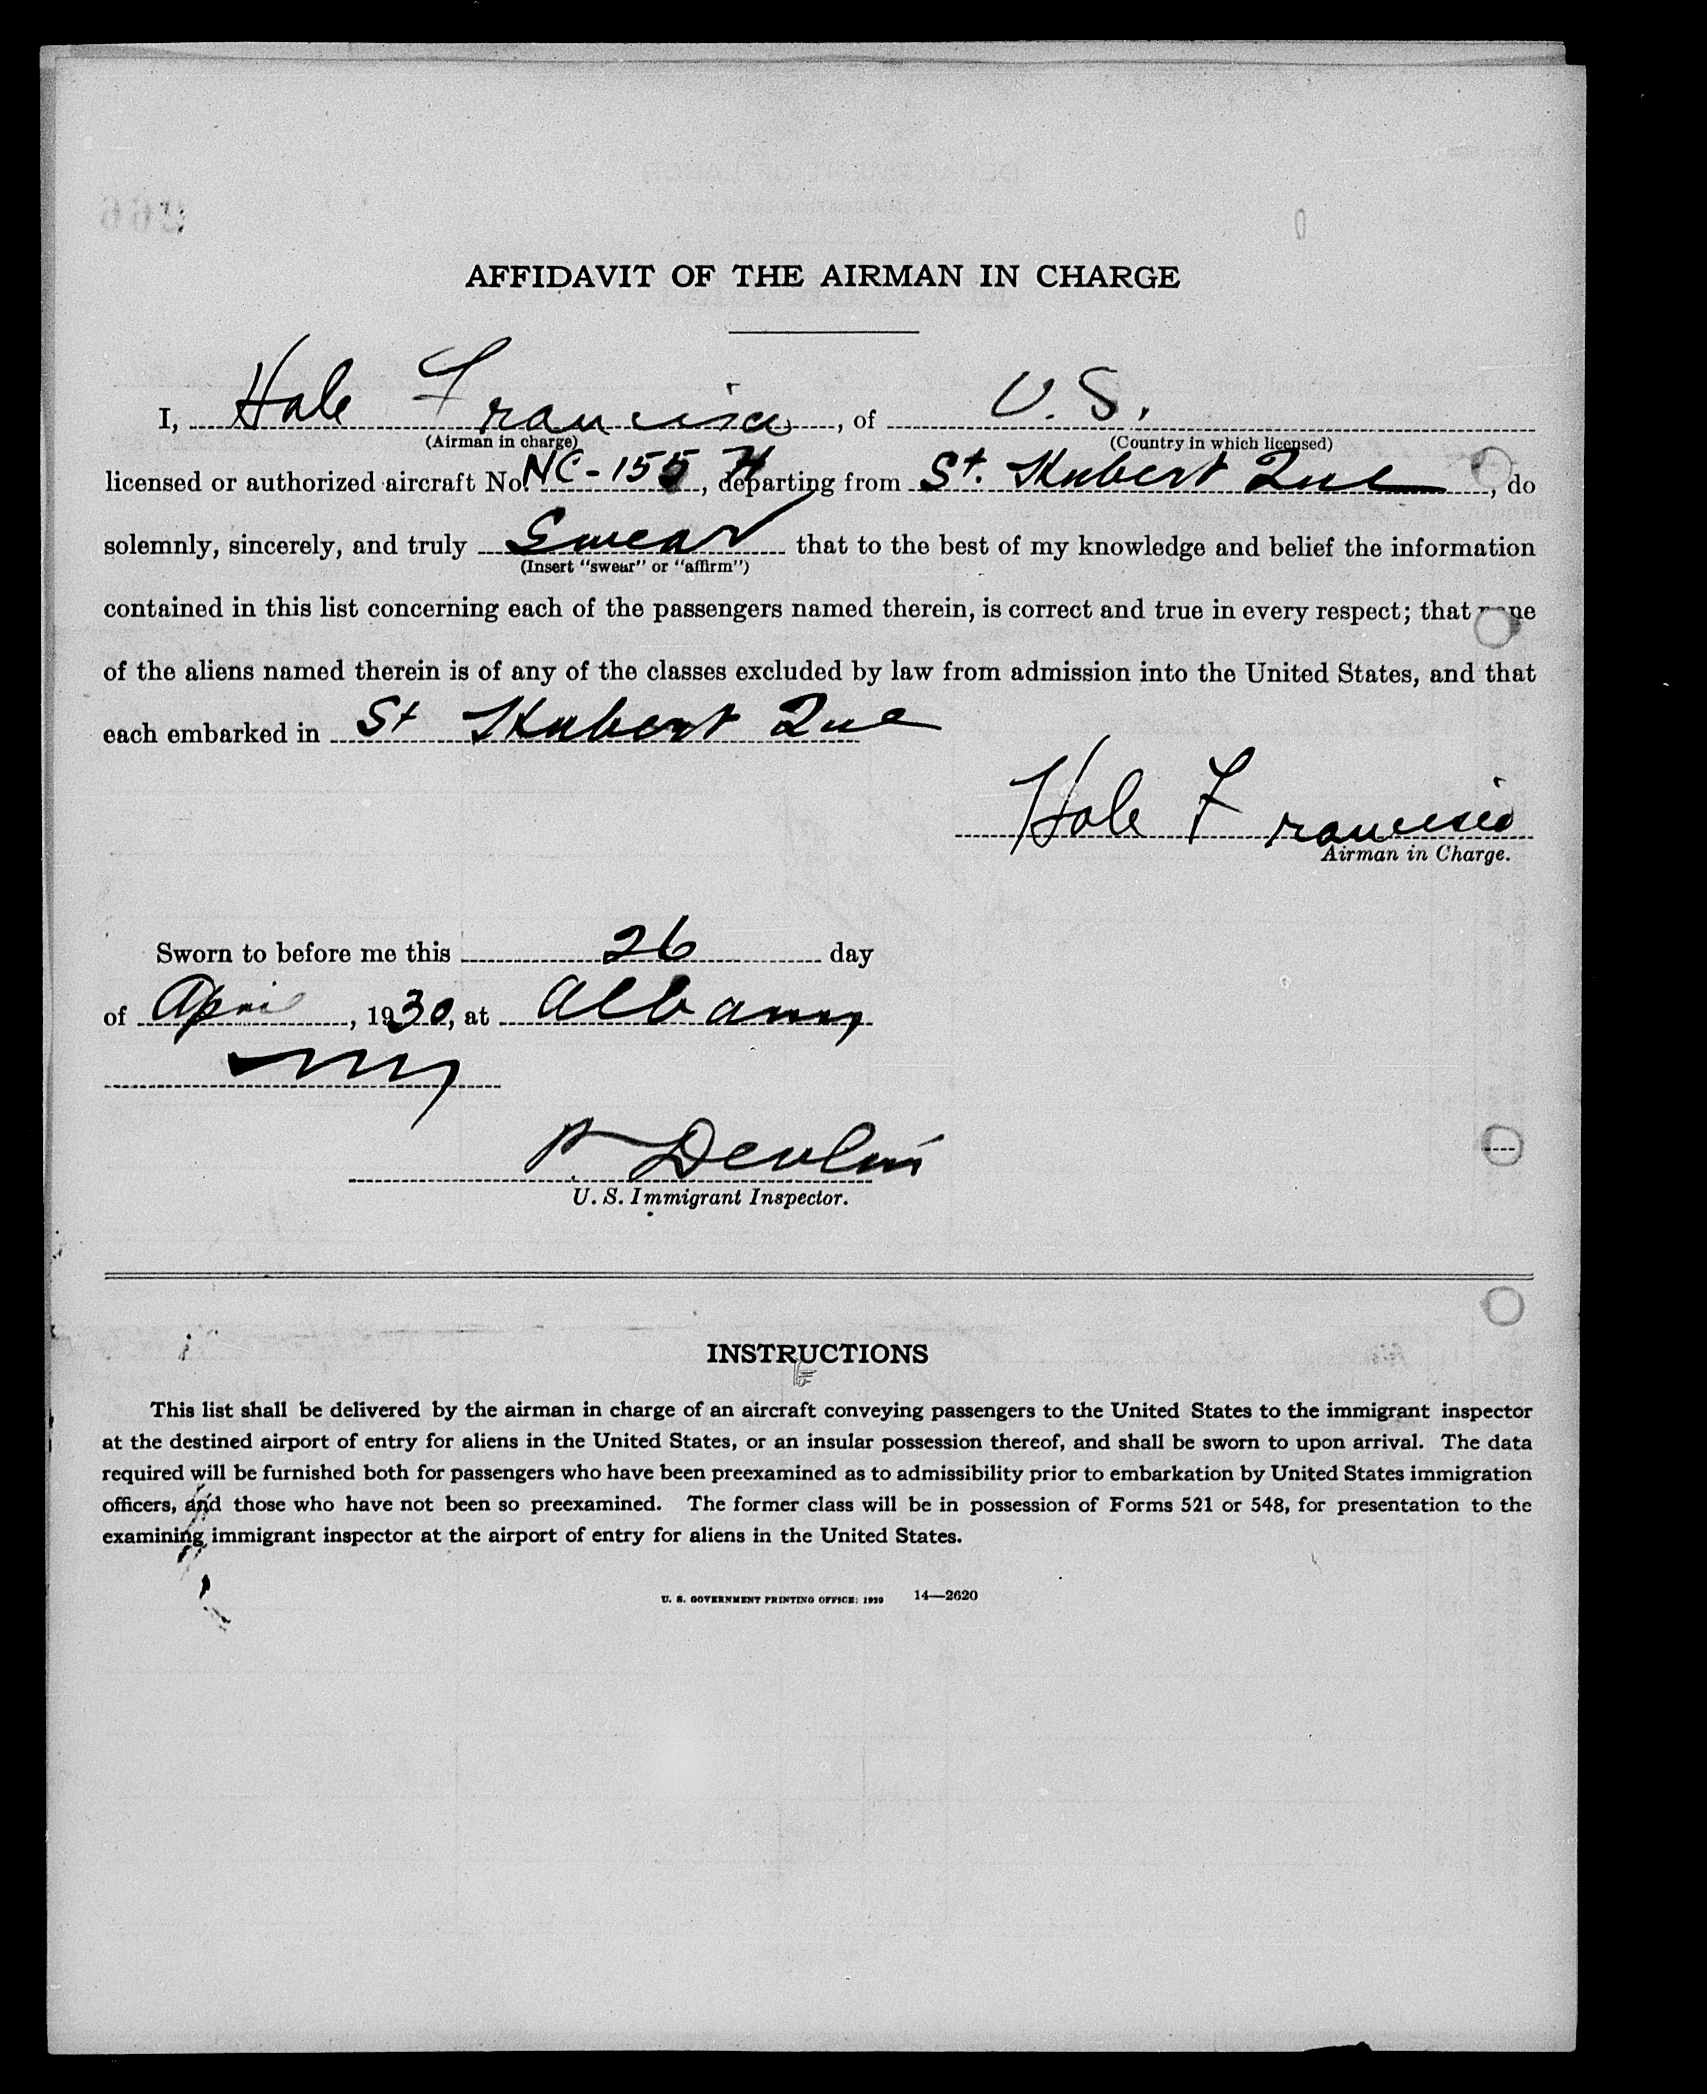 AFFIDAVIT OF THE AIRMAN IN CHARGE
I, Hale Francisco, of U.S.
(Airman in charge) (Country in which licensed)
licensed or authorized aircraft No. NC-155 H, departing from St. Hubert Que, do
solemnly, sincerely, and truly Swear that to the best of my knowledge and belief the information
(Insert "swear" or "affirm")
contained in this list concerning each of the passengers named therein, is correct and true in every respect; that none
of the aliens named therein is of any of the classes excluded by law from admission into the United States, and that
each embarked in St Hubert Que
Hale Francisco
Airman in Charge.
Sworn to before me this 26 day
of April, 1930, at Albany
NY
P. Devlin
U. S. Immigrant Inspector.
INSTRUCTIONS
This list shall be delivered by the airman in charge of an aircraft conveying passengers to the United States to the immigrant inspector
at the destined airport of entry for aliens in the United States, or an insular possession thereof, and shall be sworn to upon arrival. The data
required will be furnished both for passengers who have been preexamined as to admissibility prior to embarkation by United States immigration
officers, and those who have not been so preexamined. The former class will be in possession of Forms 521 or 548, for presentation to the
examining immigrant inspector at the airport of entry for aliens in the United States.
U. S. GOVERNMENT PRINTING OFFICE: 1929 14—2620